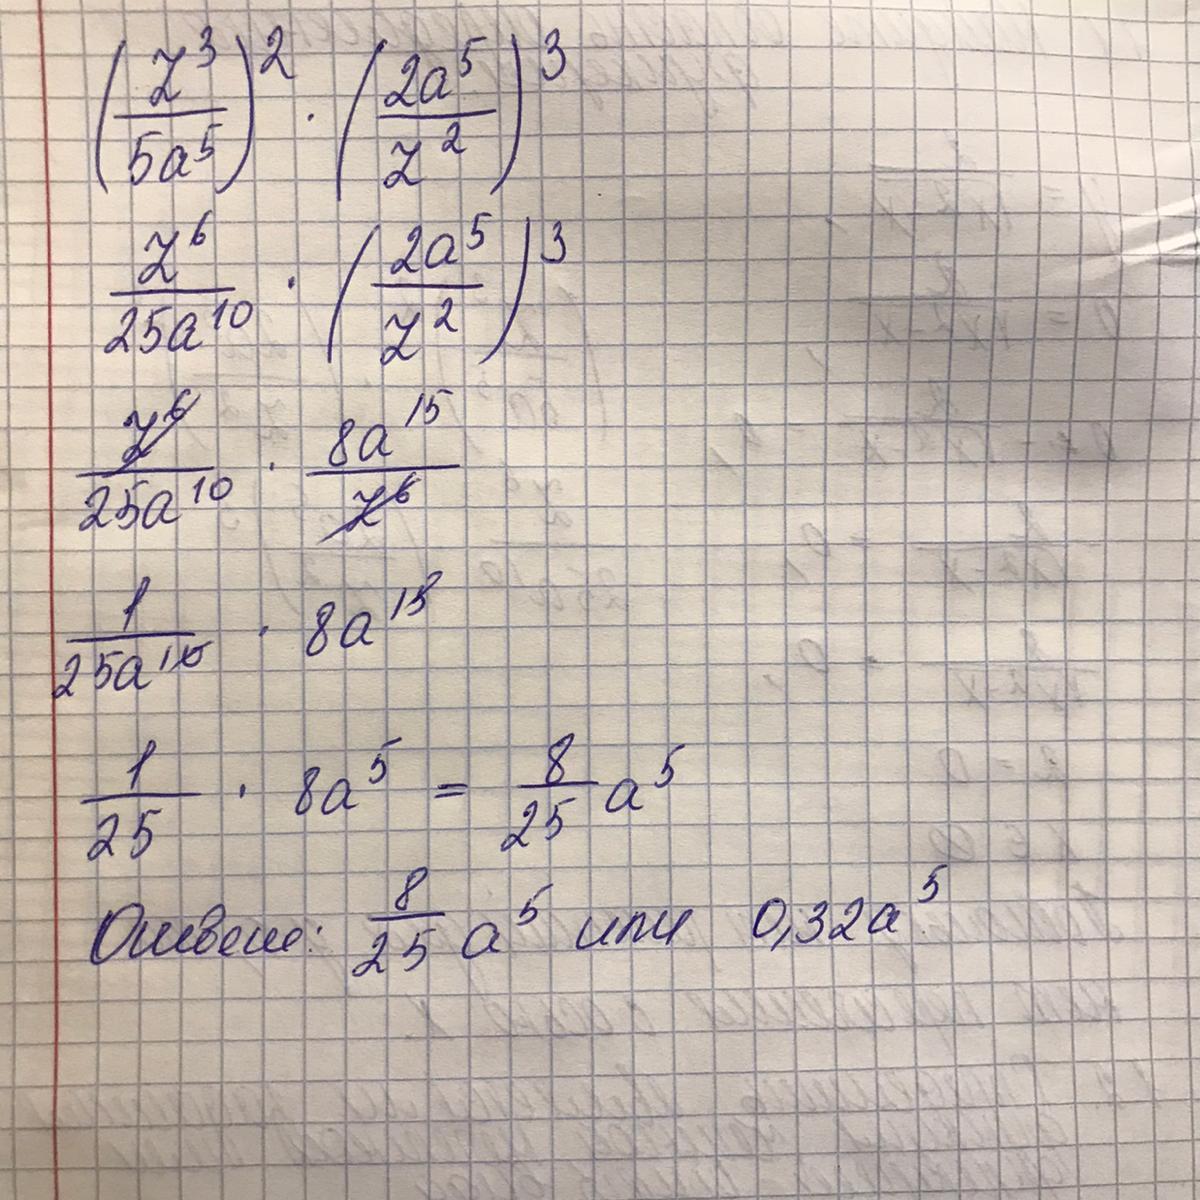 (z³/5a⁵)² · (2a⁵/z²)³
z⁶/25a¹⁰ · (2a⁵/z²)³
z⁶/25a¹⁰ · 8a¹⁵/z⁶
1/25a¹⁰ · 8a¹⁵
1/25 · 8a⁵ = 8/25 a⁵
Ответ: 8/25 a⁵ или 0,32a⁵